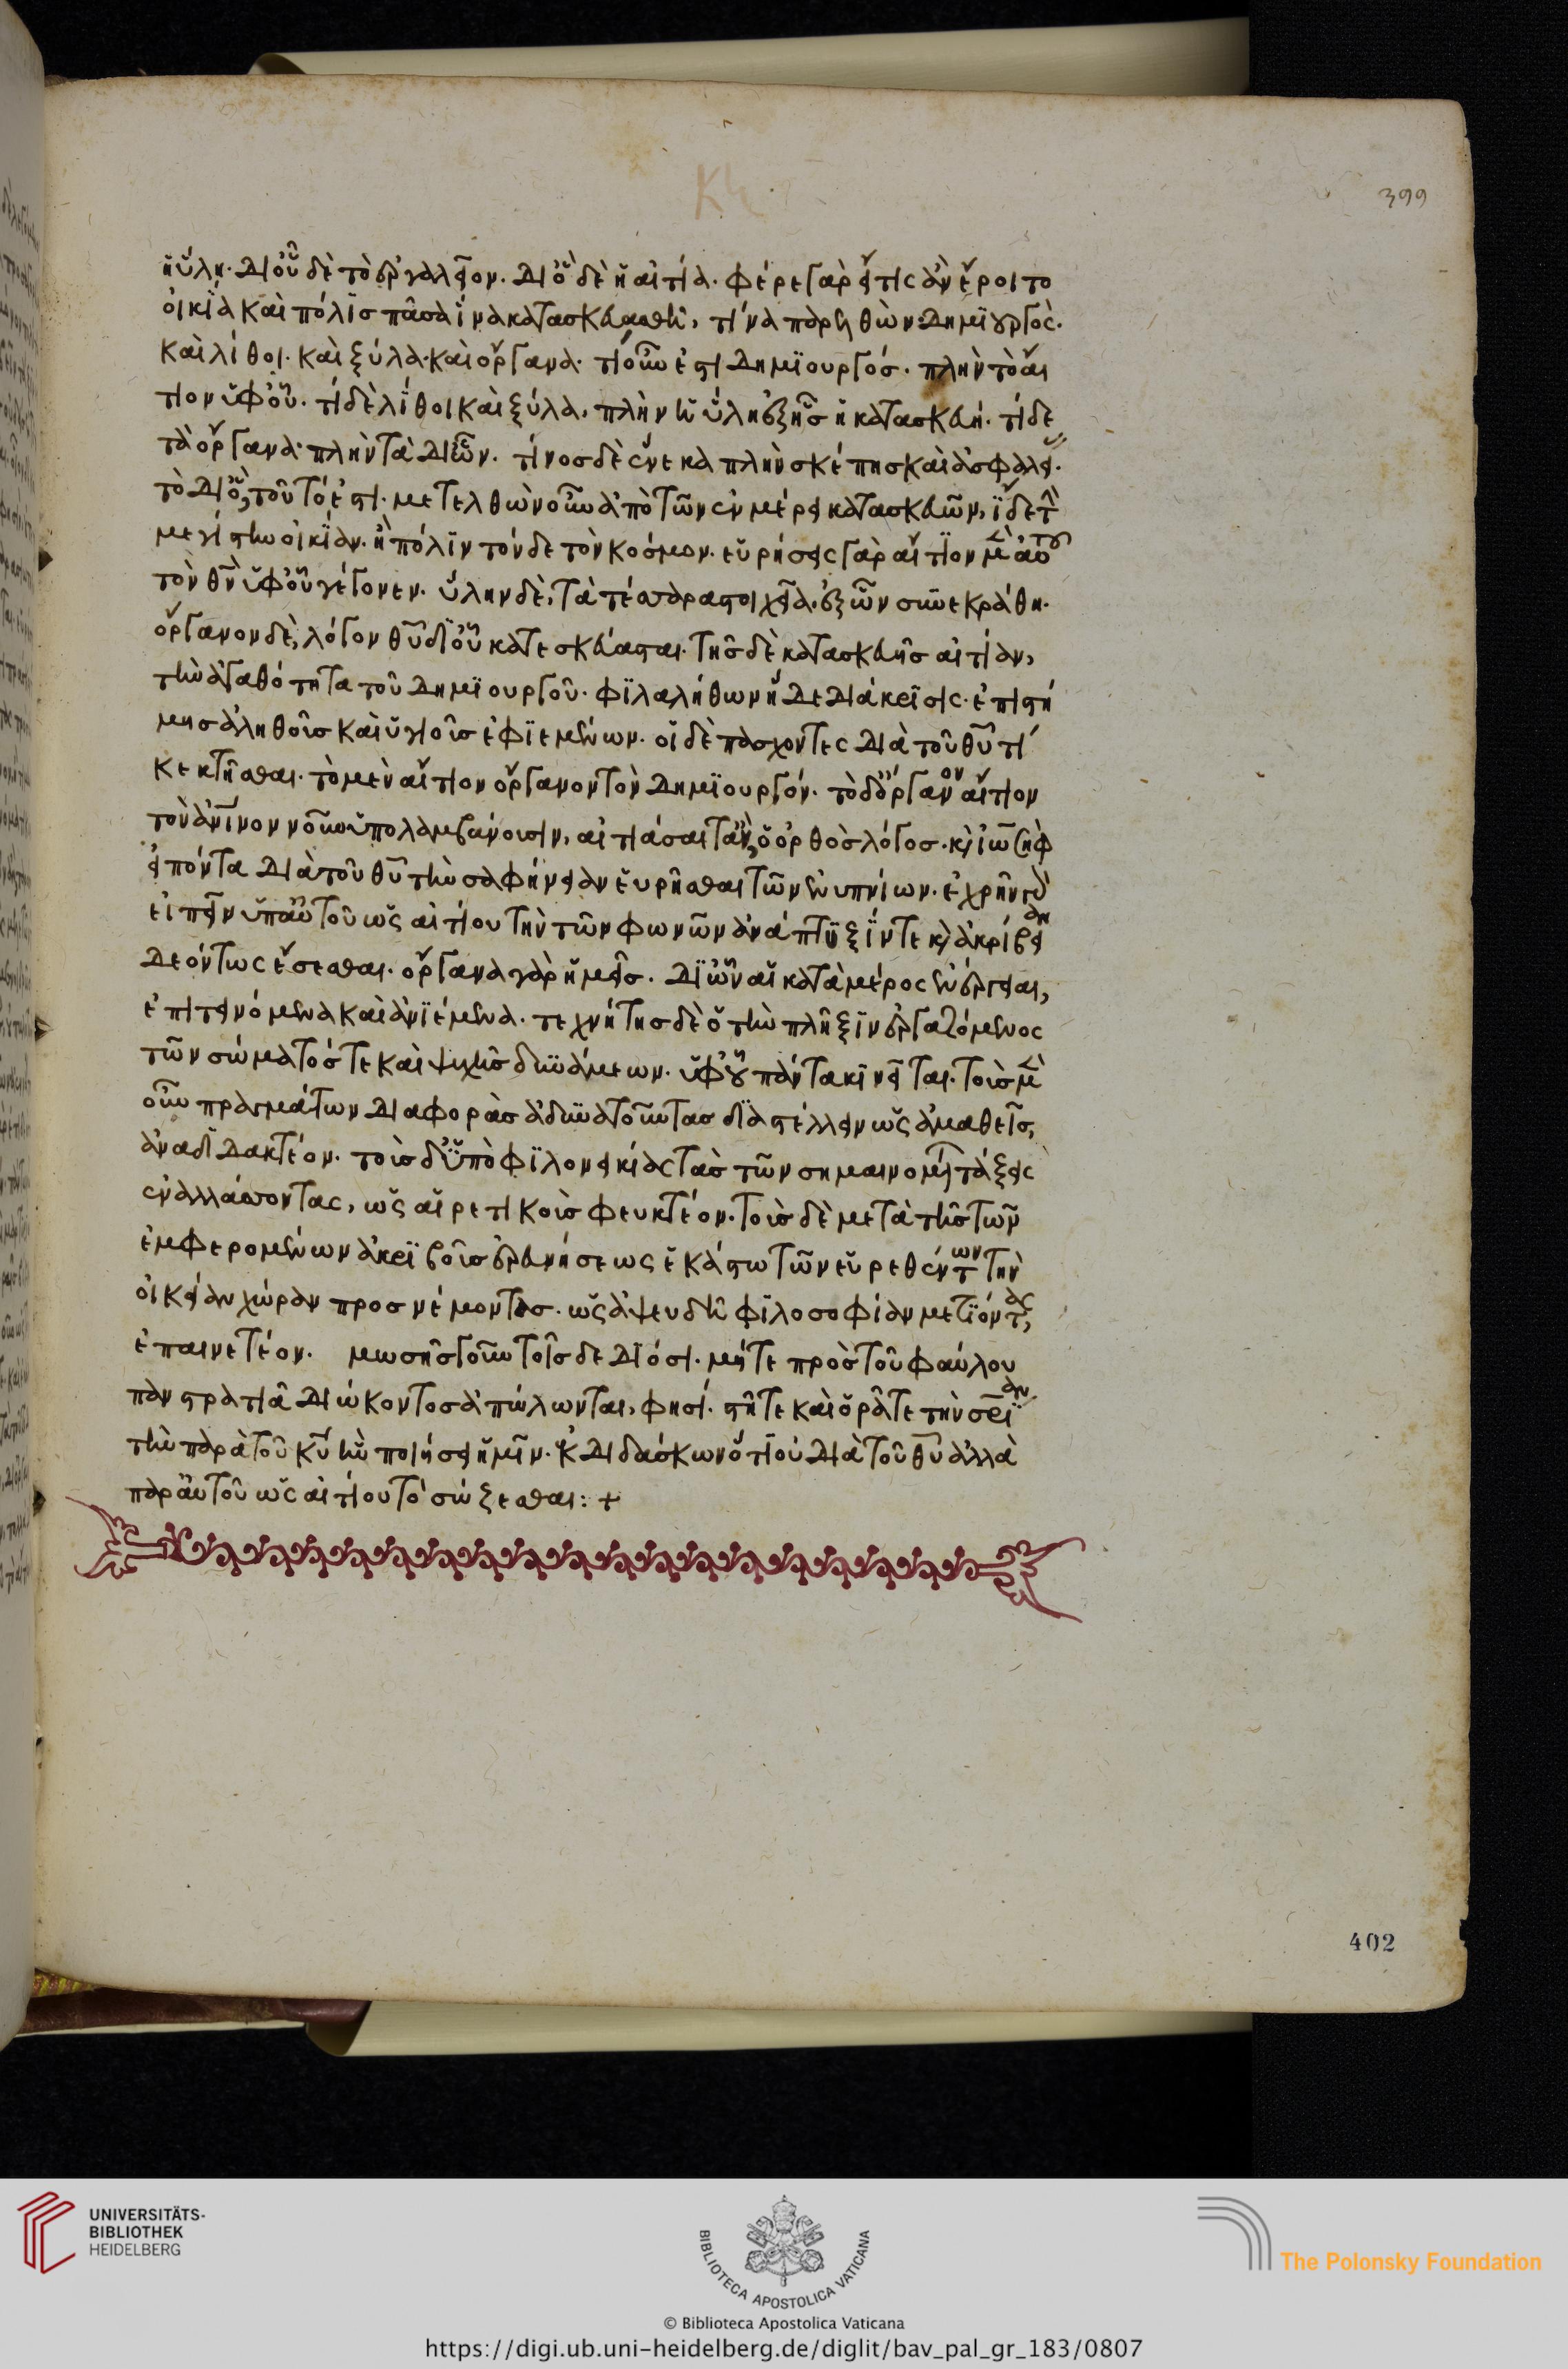 399
ἡ ὕλη. δι' οὗ δὲ τὸ ἐργαλεῖον. δι' ὃ δὲ ἡ αἰτία. φέρε γὰρ εἴ τις ἂν ἔροιτο
οἰκία καὶ πόλις πᾶσα ἵνα κατασκευασθῆ, τίνα παρελθὼν δημιουργὸς.
καὶ λίθοι. καὶ ξύλα. καὶ ὄργανα. τί οὖν ἐστι δημιουργός. πλὴν τὸ αἴ
τιον ὑφ' οὗ. τί δὲ λίθοι καὶ ξύλα, πλὴν ἡ ὕλη ἐξ ἧς ἡ κατασκευή. τί δε
τὰ ὄργανα. πλὴν τὰ δι' ὧν. τίνος δὲ ἕνεκα πλὴν σκέπης καὶ ἀσφαλεί.
τὸ δι' ὃ, τοῦτό ἐστι. μετελθὼν οὖν ἀπὸ τῶν ἐν μέρει κατασκευῶν, ἴδε τὴν
μεγίστην οἰκίαν. ἢ πόλιν τόνδε τὸν κόσμον. εὑρήσεις γὰρ αἴτιον μὲν αὐτοῦ
τὸν θν ὑφ' οὗ γέγονεν. ὕλην δὲ, τὰ τέσσαρα στοιχεῖα. ἐξ ὧν συνεκράθη.
ὄργανον δὲ, λόγον θυ δι' οὗ κατεσκεύασται. τῆς δὲ κατασκευῆς αἰτίαν,
τὴν ἀγαθότητα τοῦ δημιουργοῦ. φιλαλήθων ἥδε διάκρισις. ἐπιστή
μης ἀληθοῦς καὶ ὑγιοῦς ἐφιεμένων. οἱ δὲ πάσχοντες διὰ τοῦ θυ τί
κεκτῆσθαι. τὸ μὲν αἴτιον ὄργανον τὸν δημιουργόν. τὸ δ' ὄργανον αἴτιον
τὸν ἀνινον νοῦν ὑπολαμβάνουσιν, αἰτιάσαιτ' ἂν, ὁ ὀρθὸς λόγος. κ̀ ἰωσὴφ
εἰπόντα διὰ τοῦ θυ τὴν σαφήνειαν εὑρῆσθαι τῶν ἐνυπνίων. ἐχρῆν γὰρ
εἰπεῖν ὑπ' αὐτοῦ ὡς αἰτίου τὴν τῶν φωνῶν ἀνάπτυξίν τε κ̀ ἀκρίβειαν
δεόντως ἔσεσθαι. ὄργανα γὰρ ἡμεῖς. δι' ὧν αἱ κατὰ μέρος ἐνέργειαι,
ἐπιτεινόμενα καὶ ἀνιέμενα. τεχνίτης δὲ ὁ τὴν πλῆξιν ἐργαζόμενος
τῶν σώματός τε καὶ ψυχῆς δυνάμεων. ὑφ' οὗ πάντα κινεῖται. τοὺς μὲν
οὖν πραγμάτων διαφορὰς ἀδυνατοῦντας διαστέλλειν ὡς ἀμαθεῖς,
ἀναδιδακτέον. τοὺς δ' ὑπὸ φιλονεικίας τὰς τῶν σημαινομένων τάξεις
ἐναλλάττοντας, ὡς αἱρετικοὺς φευκτέον. τοὺς δὲ μετὰ τῆς τῶν
ἐμφερομένων ἀκριβοῦς ἐρευνήσεως ἑκάστω τῶν εὑρεθέντων τὴν
οἰκείαν χώραν προσνέμοντας. ὡς ἀψευδῆ φιλοσοφίαν μετιόντας,
ἐπαινετέον. μωσῆς γοῦν τοῖς δεδιόσι. μήτε πρὸς τοῦ φαύλου
πανστρατιᾶ διώκοντος ἀπόλωνται, φησί. στῆτε καὶ ὁρᾶτε τὴν σριαν
τὴν παρὰ τοῦ κυ ἣν ποιήσει ἡμῖν. ἐκδιδάσκων ὅτι οὐ διὰ τοῦ θυ ἀλλὰ
παρ' αὐτοῦ ὡς αἰτίου τὸ σώζεσθαι: +
402
UNIVERSITÄTS-
BIBLIOTHEK
HEIDELBERG
BIBLIOTECA APOSTOLICA VATICANA
The Polonsky Foundation
© Biblioteca Apostolica Vaticana
https://digi.ub.uni-heidelberg.de/diglit/bav_pal_gr_183/0807